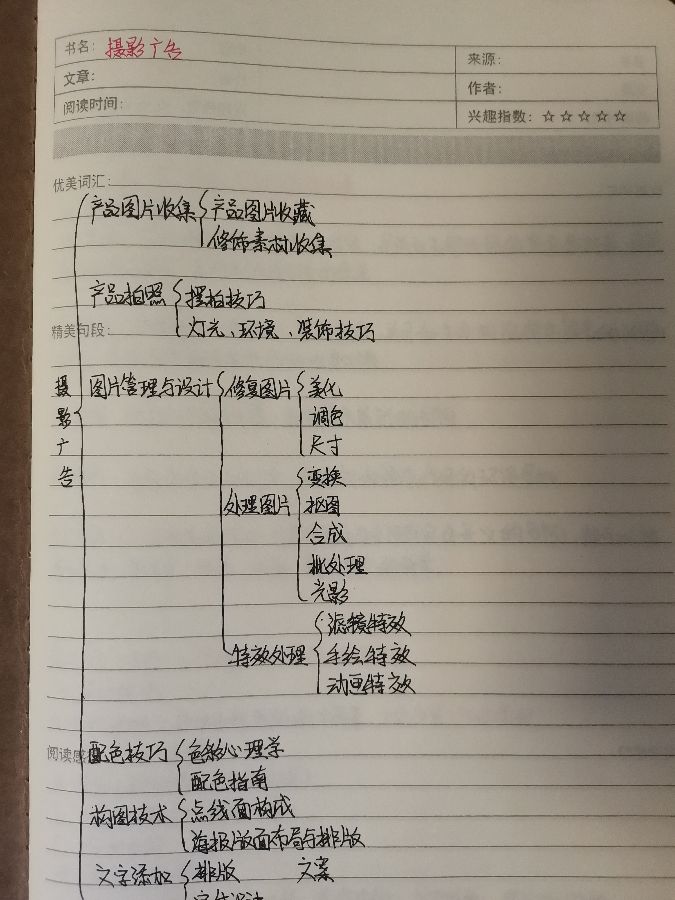 书名: 摄影广告
来源:
文章:
作者:
阅读时间:
兴趣指数: ☆☆☆☆☆
优美词汇:
产品图片收集 产品图片收藏
修饰素材收集
产品拍照 摆拍技巧
精美句段:
灯光、环境、装饰技巧
摄影广告
图片管理与设计 修复图片 美化
调色
尺寸
变换
处理图片 抠图
合成
批处理
光影
滤镜特效
特效处理 手绘特效
动画特效
阅读感
配色技巧 色彩心理学
配色指南
构图技术 点线面构成
海报版面布局与排版
文字添加 排版 文案
字体设计